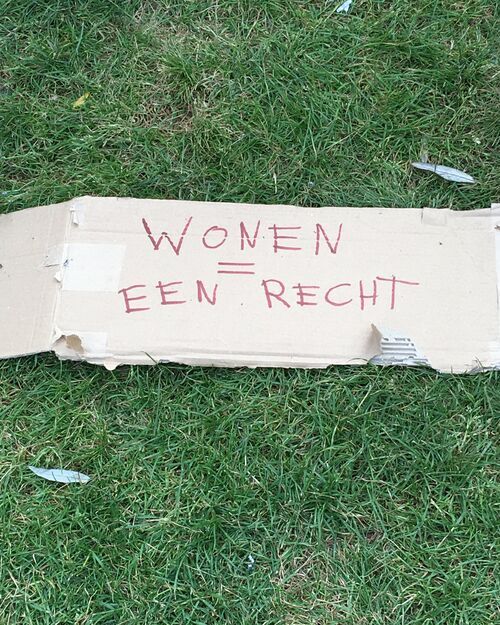 WONEN
=
EEN RECHT